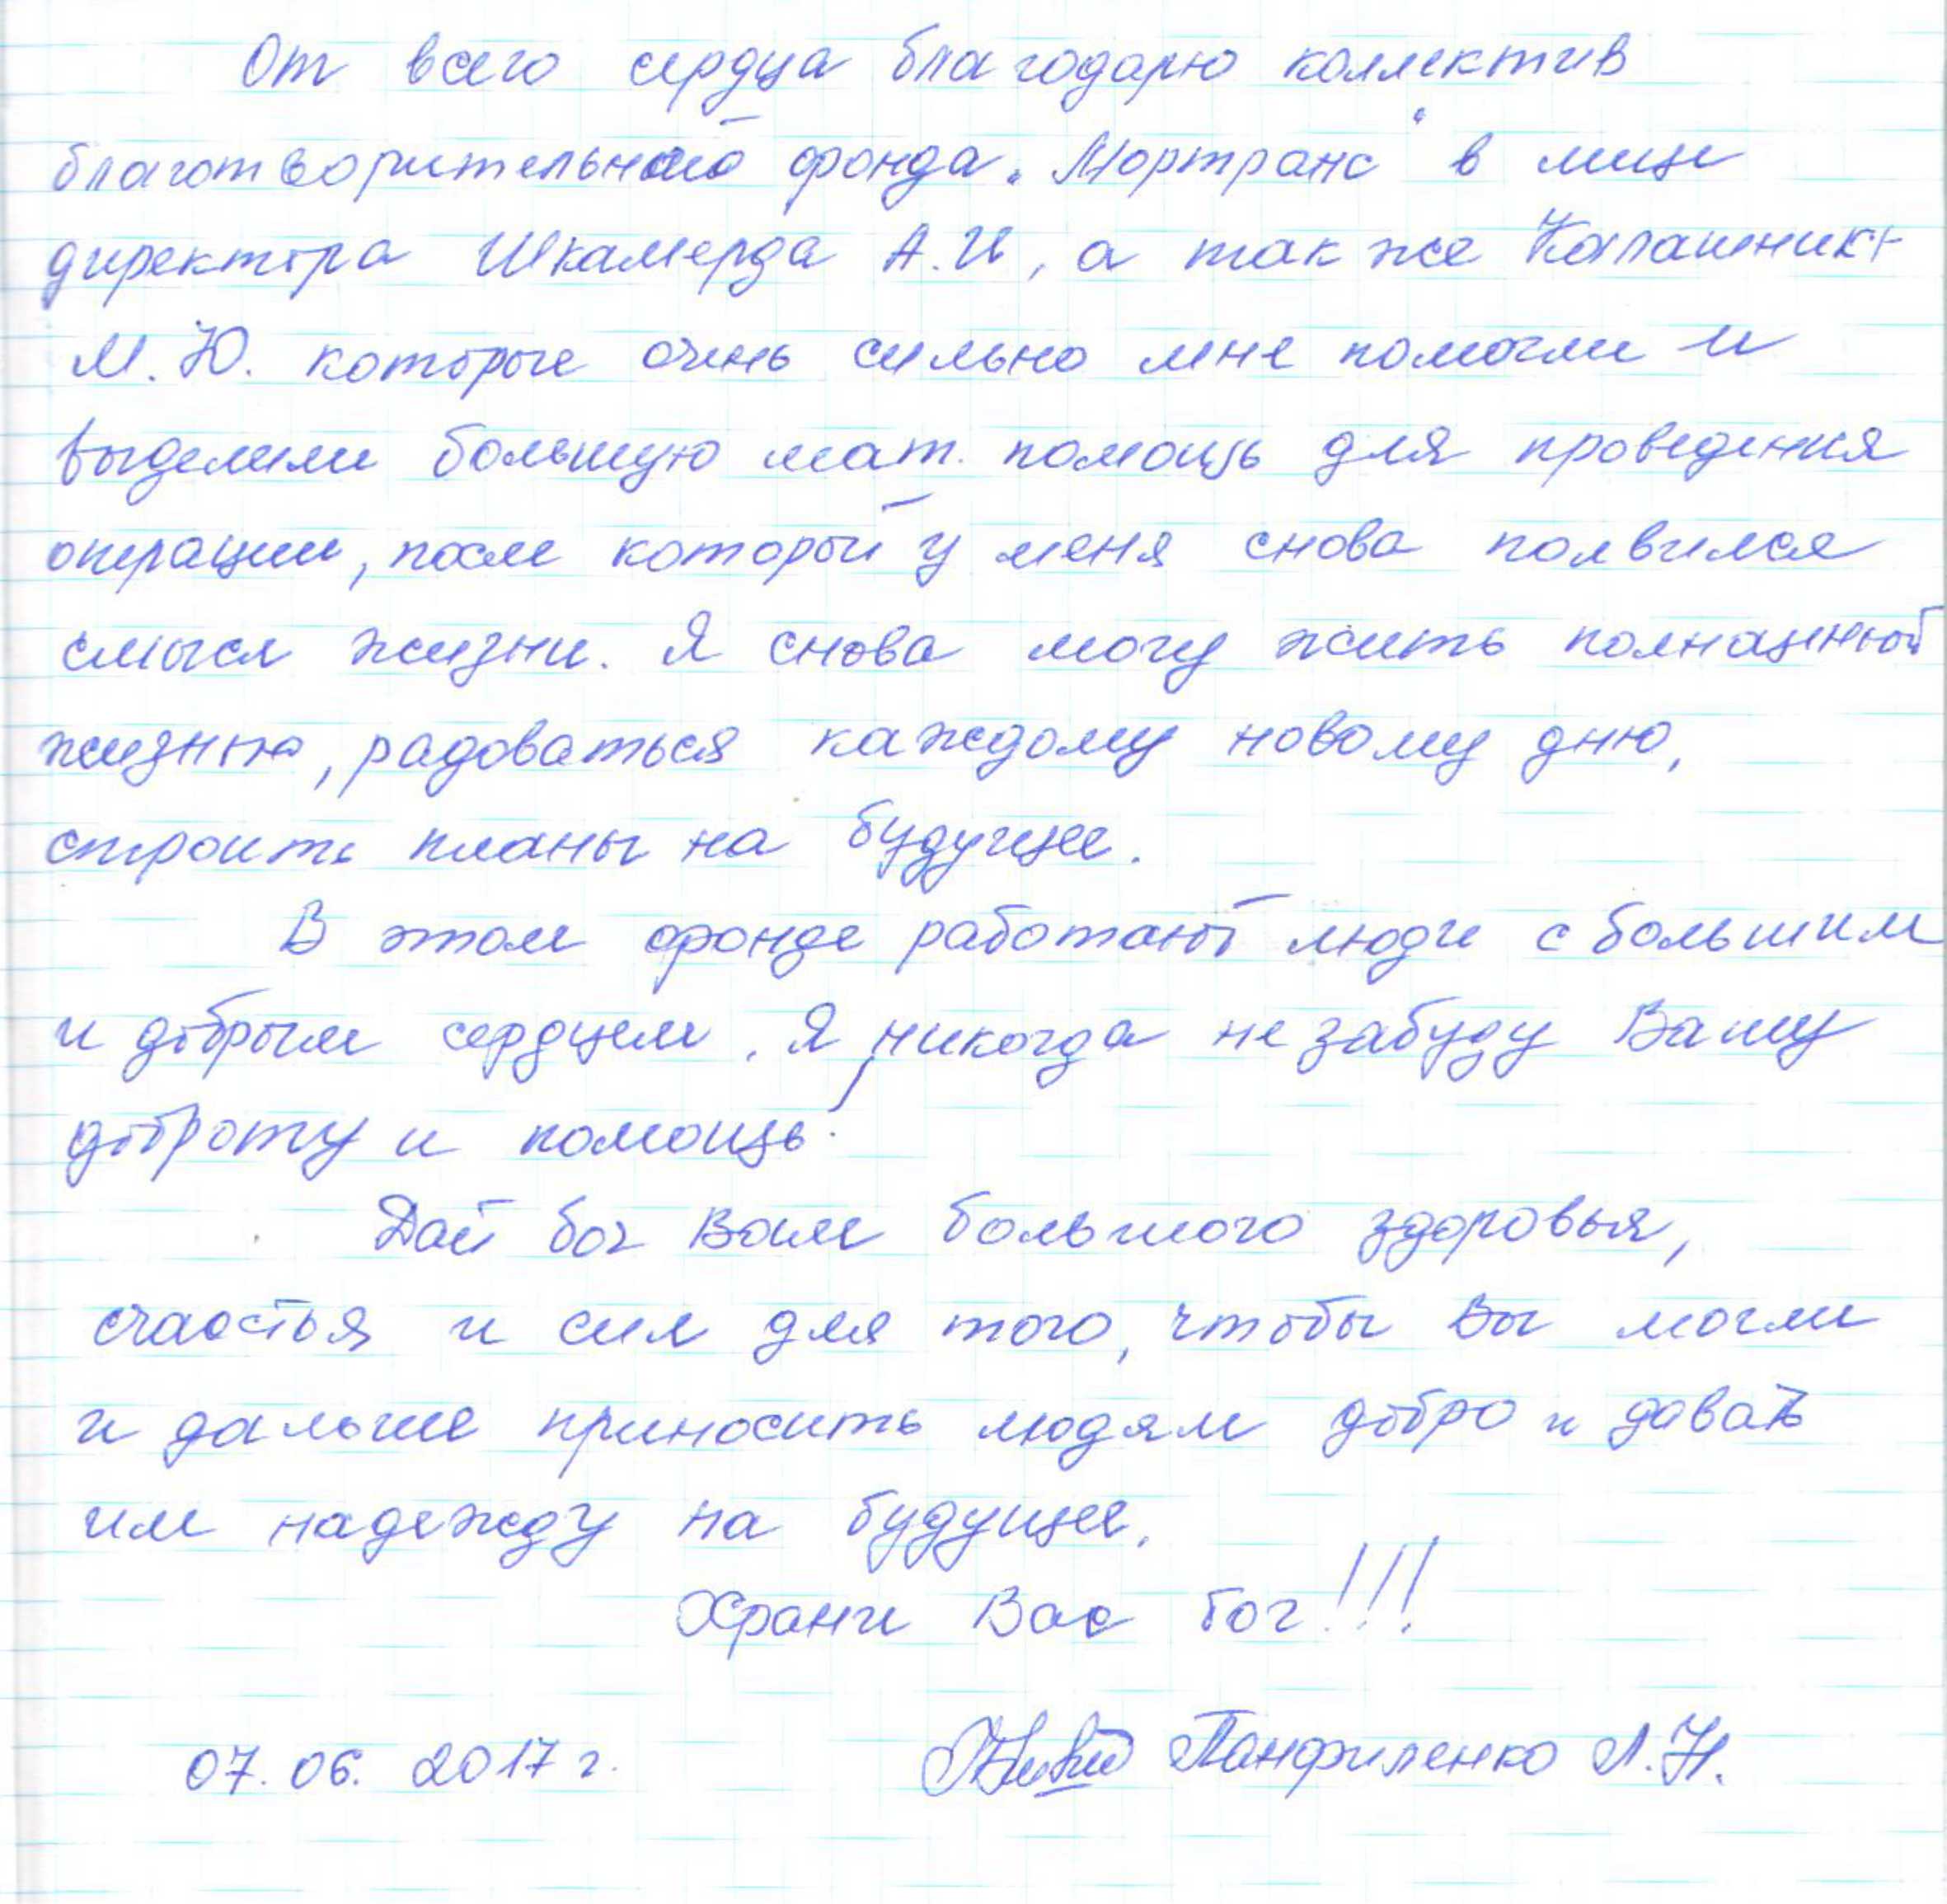 От всего сердца благодарю коллектив
благотворительного фонда „Мортранс“ в лице
директора Шкамерда А.И, а так же
М.Ю. которые очень сильно мне помогли и
выделили большую мат. помощь для проведения
операции, после которой у меня снова появился
смысл жизни. Я снова могу жить полнаценной
жизнью, радоваться каждому новому дню,
строить планы на будущее.
В этом фонде работают люди с большим
и добрым сердцем. Я никогда не забуду Вашу
доброту и помощь!
Дай бог Вам большого здоровья,
счастья и сил для того, чтобы Вы могли
и дальше приносить людям добро и давать
им надежду на будущее.
Храни Вас бог!!!
07.06.2017 г. Панфиленко Л.Н.